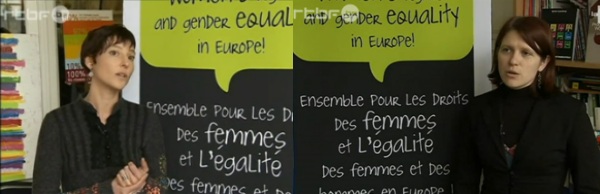 rtbf
and gender equality
in Europe!
Ensemble pour les Droits
Des femmes
et l'égalité
Des femmes et des
rtbf
and gender equality
in Europe!
Ensemble pour les Droits
Des femmes
et l'égalité
Des femmes et des
hommes en Europe!